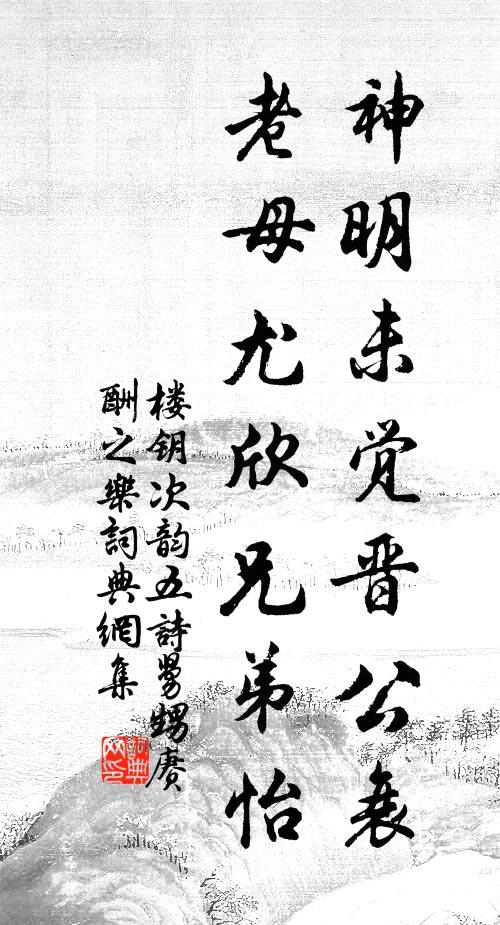 神明未觉晋公衰
老母尤欣兄弟怡
楼钥次韵五詩舅甥賡
酬之樂詞典網集